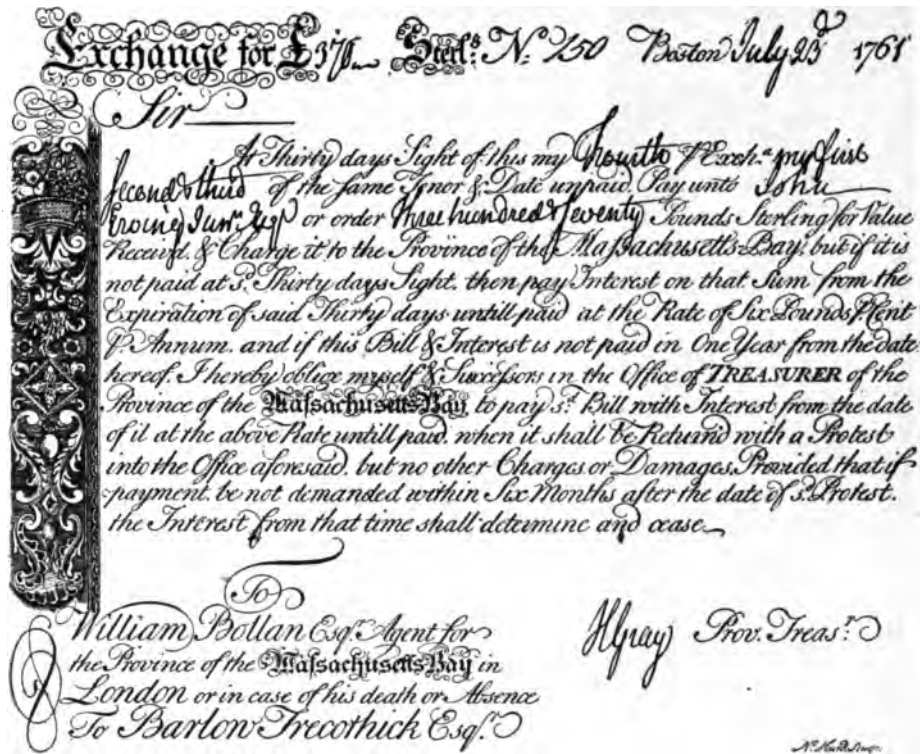 Exchange for £370 Sterl.g No. 150 Boston July 23d 1761
Sir
At Thirty days Sight of this my Fourth of Exch.a my first
Second & third of the same Tenor & Date unpaid. Pay unto John
Erving Junr. Esqr or order Three hundred & Seventy Pounds Sterling for Value
Receivd. & Charge it to the Province of the Massachusetts-Bay, but if it is
not paid at sd. Thirty days Sight, then pay Interest on that Sum from the
Expiration of said Thirty days untill paid at the Rate of Six Pounds P. Cent
P. Annum. and if this Bill & Interest is not paid in One Year from the date
hereof. I hereby oblige myself & Successors in the Office of TREASURER of the
Province of the Massachusetts Bay to pay sd. Bill with Interest from the date
of it at the above Rate untill paid. when it shall be Returnd with a Protest
into the Office aforesaid. but no other Charges or Damages. Provided that if
payment be not demanded within Six Months after the date of sd. Protest.
the Interest from that time shall determine and cease
To
William Bollan Esqr. Agent for
the Province of the Massachusetts Bay in
London or in case of his death or Absence
To Barlow Trecothick Esqr.
HGray Prov. Treasr.